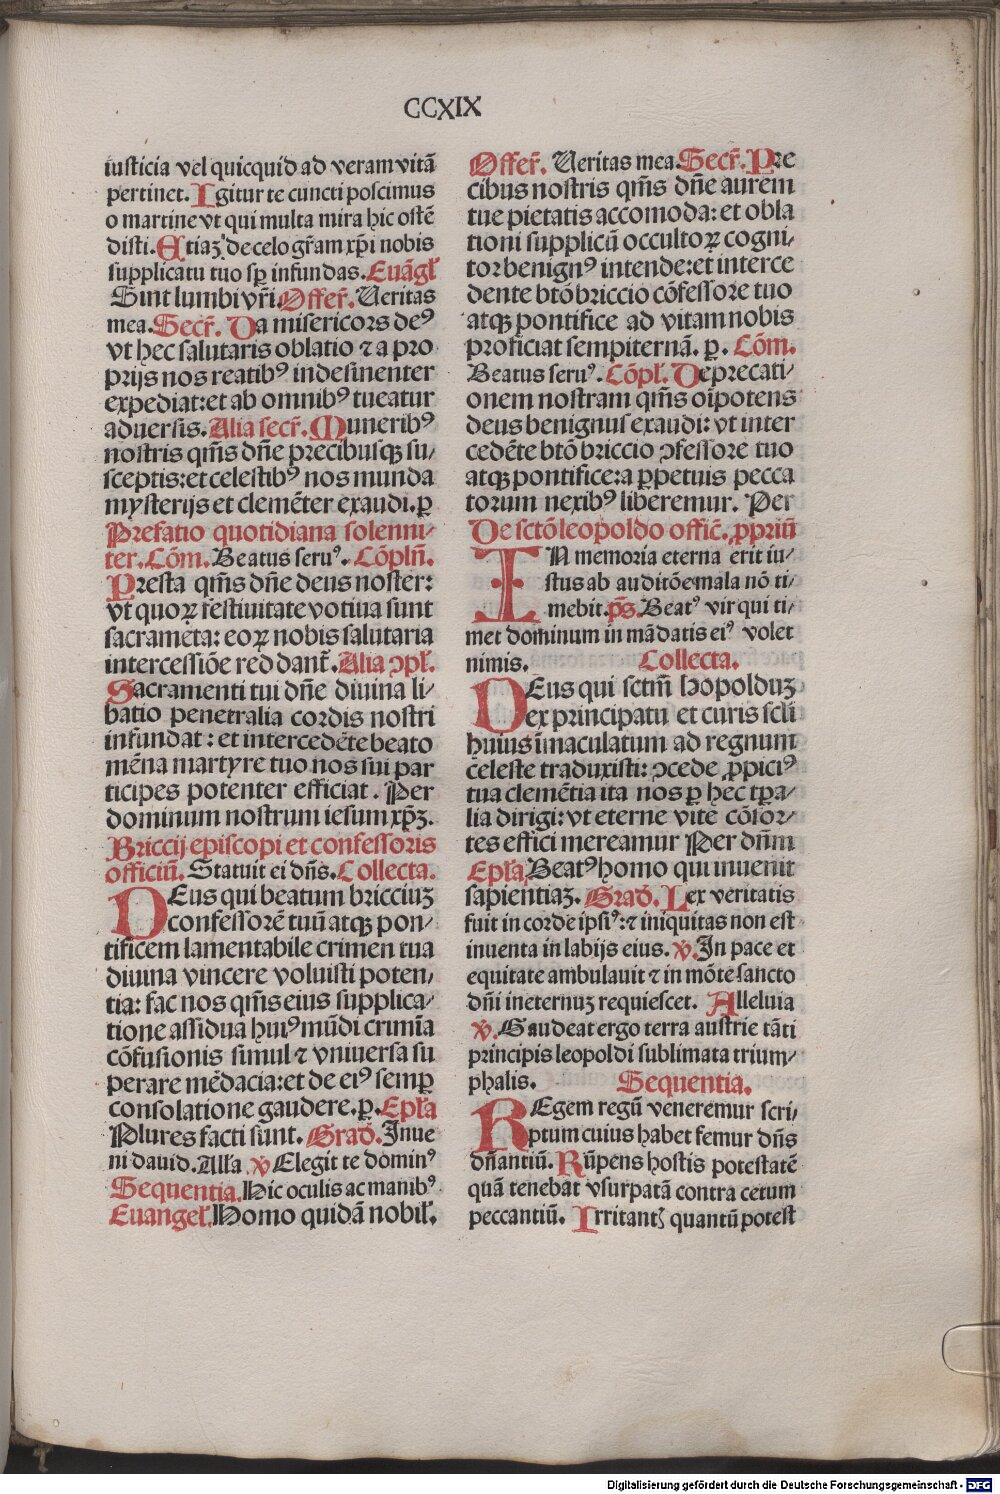 CCXIX
iusticia vel quicquid ad veram vitā
pertinet. Igitur te cuncti poscimus
o martine vt qui multa mira hic ostē
disti. Etiaꝫ de celo gr̄am xp̄i nobis
supplicatu tuo sꝑ infundas. Euāgl̄
Sint lumbi vr̄i. Offer̄. Veritas
mea. Secr̄. Da misericors deꝰ
vt hec salutaris oblatio ⁊ a pro
prijs nos reatibꝰ indesinenter
expediat: et ab omnibꝰ tueatur
aduersis. Alia secr̄. Muneribꝰ
nostris qm̄s dn̄e precibusqꝫ su⸗
sceptis: et celestibꝰ nos munda
mysterijs et clemēter exaudi. ꝑ
Prefatio quotidiana solenni⸗
ter. Cōm. Beatus seruꝰ. Cōpln̄.
Presta qm̄s dn̄e deus noster:
vt quoꝝ festiuitate votiua sunt
sacramēta: eoꝝ nobis salutaria
intercessiōe reddant̄. Alia ꝯpl̄.
Sacramenti tui dn̄e diuina li⸗
batio penetralia cordis nostri
infundat: et intercedēte beato
mēna martyre tuo nos sui par
ticipes potenter efficiat. Per
dominum nostrum iesum xp̄ꝫ.
Briccij episcopi et confessoris
officiū. Statuit ei dn̄s. Collecta.
DEus qui beatum bricciuꝫ
confessorē tuū atqꝫ pon⸗
tificem lamentabile crimen tua
diuina vincere voluisti poten⸗
tia: fac nos qm̄s eius supplica⸗
tione assidua huiꝰ mūdi crimīa
cōfusionis simul ⁊ vniuersa su
perare mēdacia: et de eiꝰ semꝑ
consolatione gaudere. ꝑ. Epl̄a
Plures facti sunt. Grad̄. Inue
ni dauid. All̄a ℣ Elegit te dominꝰ
Sequentia. Hic oculis ac manibꝰ
Euangel̄. Homo quidā nobil̄.
Offer̄. Veritas mea. Secr̄. Pre
cibus nostris qm̄s dn̄e aurem
tue pietatis accomoda: et obla
tioni supplicū occultoꝝ cogni⸗
tor benignꝰ intende: et interce
dente btō briccio cōfessore tuo
atqꝫ pontifice ad vitam nobis
proficiat sempiternā. ꝑ. Cōm.
Beatus seruꝰ. Cōpl̄. Deprecati⸗
onem nostram qm̄s oīpotens
deus benignus exaudi: vt inter
cedēte btō briccio ꝯfessore tuo
atqꝫ pontifice: a ꝑpetuis pecca
torum nexibꝰ liberemur. Per
De sctō leopoldo offic̄. ꝓpriū
IN memoria eterna erit iu⸗
stus ab auditōe mala nō ti⸗
mebit. ps̄. Beatꝰ vir qui ti⸗
met dominum in mādatis eiꝰ volet
nimis. Collecta.
DEus qui sctm̄ leopolduꝫ
ex principatu et curis scl̄i
huius īmaculatum ad regnum
celeste traduxisti: ꝯcede ꝓpiciꝰ
tua clemētia ita nos ꝑ hec tꝑa⸗
lia dirigi: vt eterne vite cōsor⸗
tes effici mereamur Per dn̄m
Epl̄a. Beatꝰ homo qui inuenit
sapientiaꝫ. Grad̄. Lex veritatis
fuit in corde ipsiꝰ: ⁊ iniquitas non est
inuenta in labijs eius. ℣. In pace et
equitate ambulauit ⁊ in mōte sancto
dn̄i in eternuꝫ requiescet. Alleluia
℣. Gaudeat ergo terra austrie tāti
principis leopoldi sublimata trium⸗
phalis. Sequentia.
REgem regū veneremur scri⸗
ptum cuius habet femur dn̄s
dn̄antiū. Rūpens hostis potestatē
quā tenebat vsurpatā contra cetum
peccantiū. Irritant quantū potest
Digitalisierung gefördert durch die Deutsche Forschungsgemeinschaft - DFG